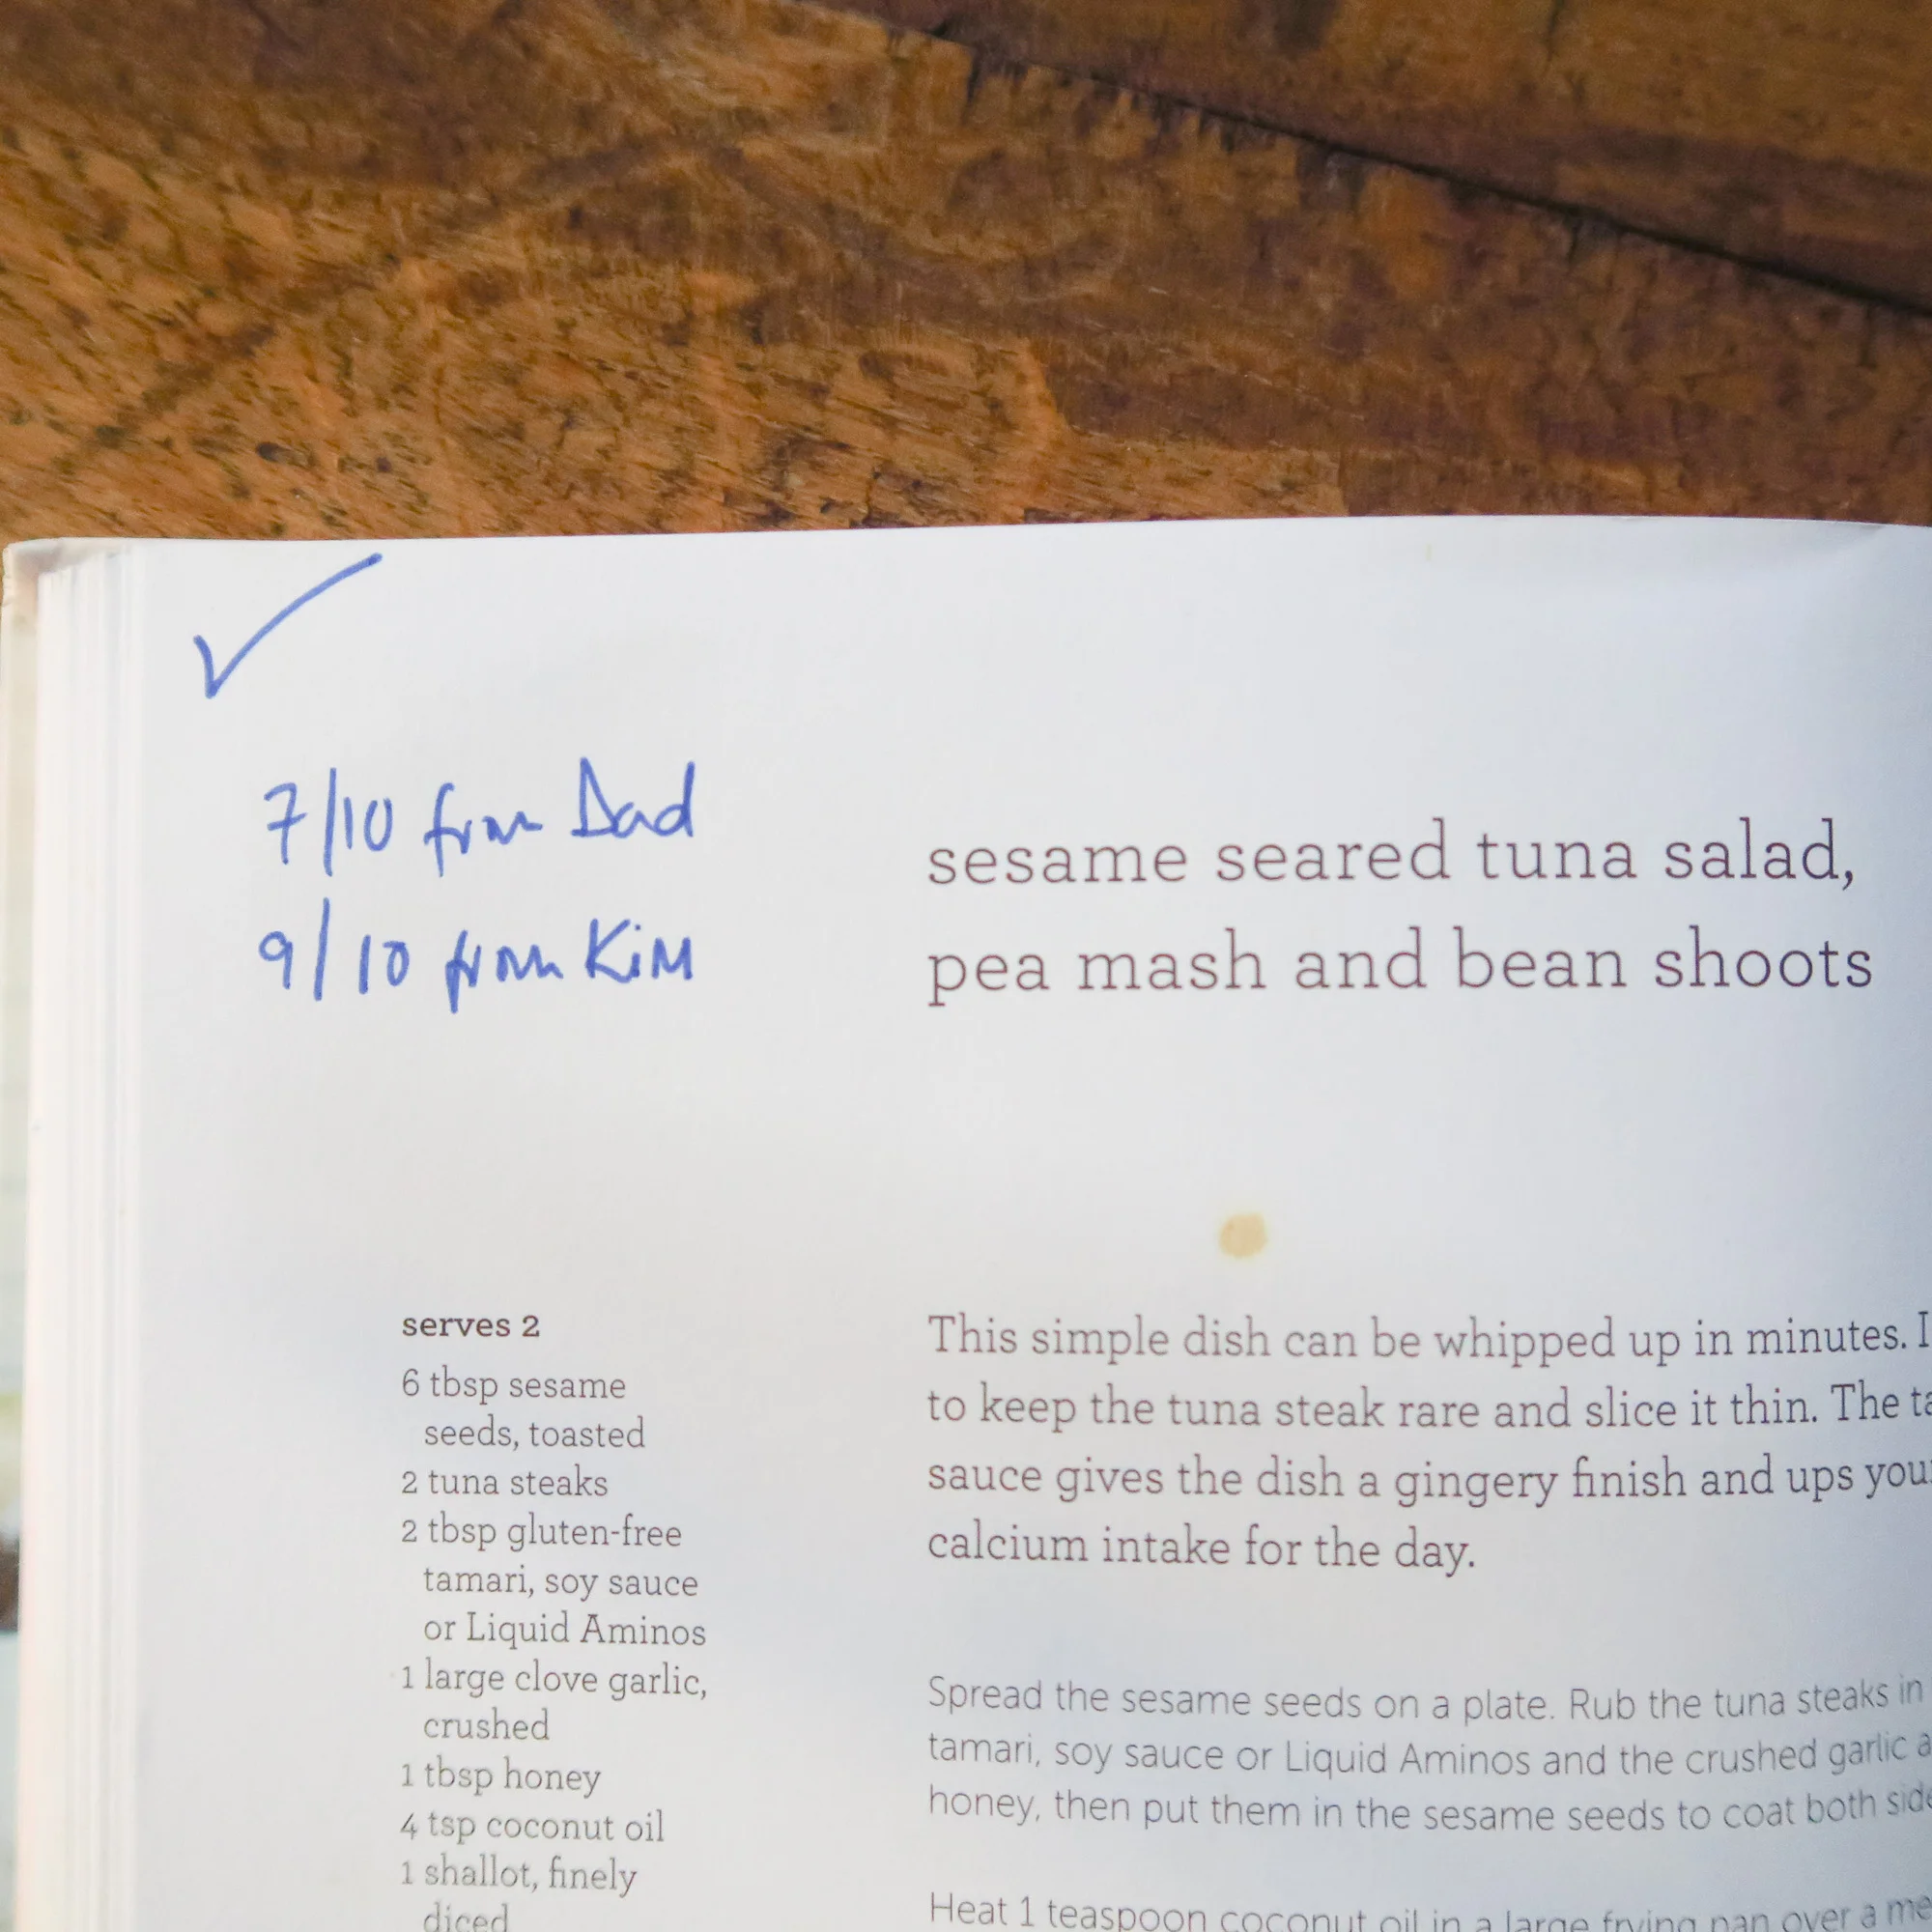 7/10 from Dad
9/10 from Kim
sesame seared tuna salad,
pea mash and bean shoots
serves 2
6 tbsp sesame
seeds, toasted
2 tuna steaks
2 tbsp gluten-free
tamari, soy sauce
or Liquid Aminos
1 large clove garlic,
crushed
1 tbsp honey
4 tsp coconut oil
1 shallot, finely
diced
This simple dish can be whipped up in minutes.
to keep the tuna steak rare and slice it thin. The
sauce gives the dish a gingery finish and ups
calcium intake for the day.
Spread the sesame seeds on a plate. Rub the tuna steaks in
tamari, soy sauce or Liquid Aminos and the crushed garlic
honey, then put them in the sesame seeds to coat both
Heat 1 teaspoon coconut oil in a large frying pan over a